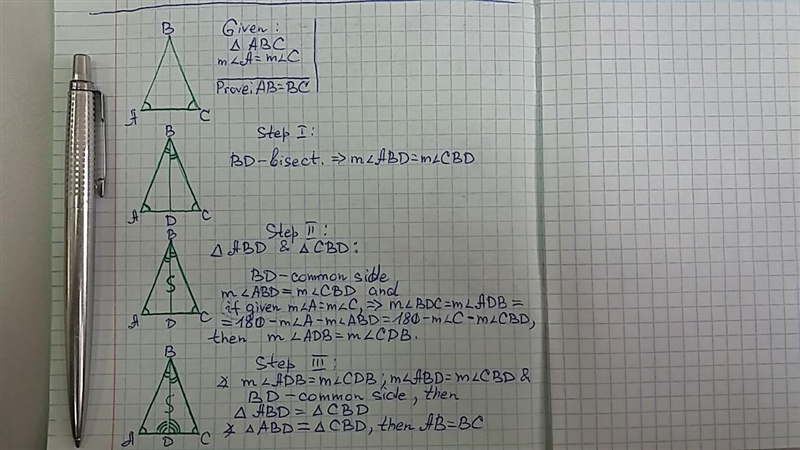 B
Given:
△ ABC
m∠A=m∠C
Prove: AB=BC
A C
B
Step I:
BD-bisect. ⇒ m∠ABD=m∠CBD
A D C
B
Step II:
△ ABD & △ CBD:
BD-common side,
m∠ABD=m∠CBD and
if given m∠A=m∠C, ⇒ m∠BDC=m∠ADB=
=180-m∠A-m∠ABD=180-m∠C-m∠CBD,
then m∠ADB=m∠CDB.
S
A D C
B
Step III:
m∠ADB=m∠CDB; m∠ABD=m∠CBD &
BD-common side, then
△ ABD = △ CBD
△ ABD = △ CBD, then AB=BC
S
A D C